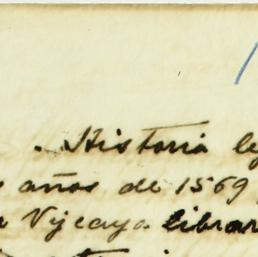 Historia
años de 1569
Vizcaya librar